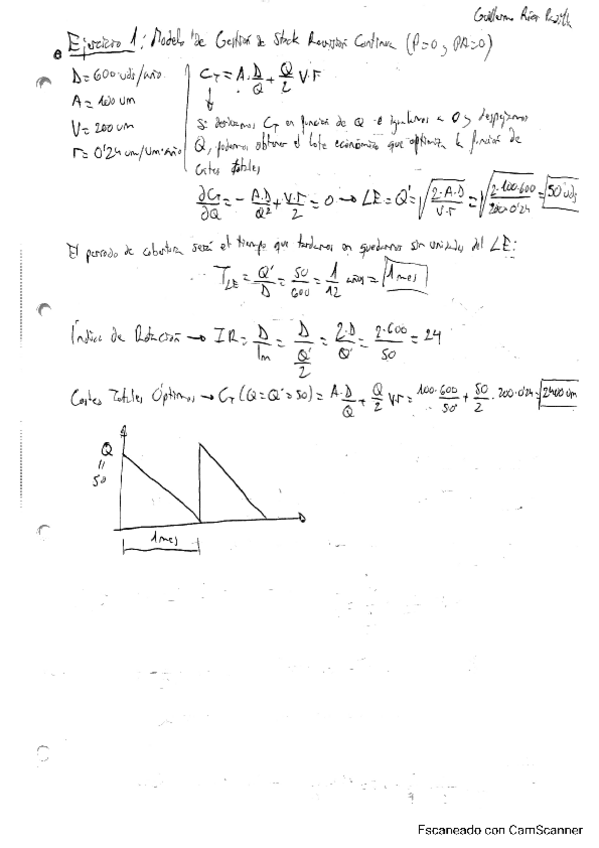 Guillermo
Ejercicio 1: Modelo de Gestión de Stock Revisión Continua (P=0 y PA=0)
D=600 uds/año
A=100 um
V=200 um
r=0'24 um/um·año
C_T = A·D/Q + Q/2 V·r
Si derivamos C_T en función de Q e igualamos a 0 y despejamos
Q, podemos obtener el lote económico que optimiza la función de
costes totales
∂C_T/∂Q = -A·D/Q² + V·r/2 = 0 → LE = Q' = √(2·A·D/V·r) = √(2·100·600/200·0'24) = 50 uds
El periodo de cobertura será el tiempo que tardamos en quedarnos sin unidades del LE:
T_LE = Q'/D = 50/600 = 1/12 años = 1 mes
Índice de Rotación → IR = D/Im = D/(Q'/2) = 2·D/Q' = 2·600/50 = 24
Costes Totales Óptimos → C_T (Q=Q'=50) = A·D/Q + Q/2 V·r = 100·600/50 + 50/2 · 200·0'24 = 2400 um
Q
=
50
1 mes
Escaneado con CamScanner